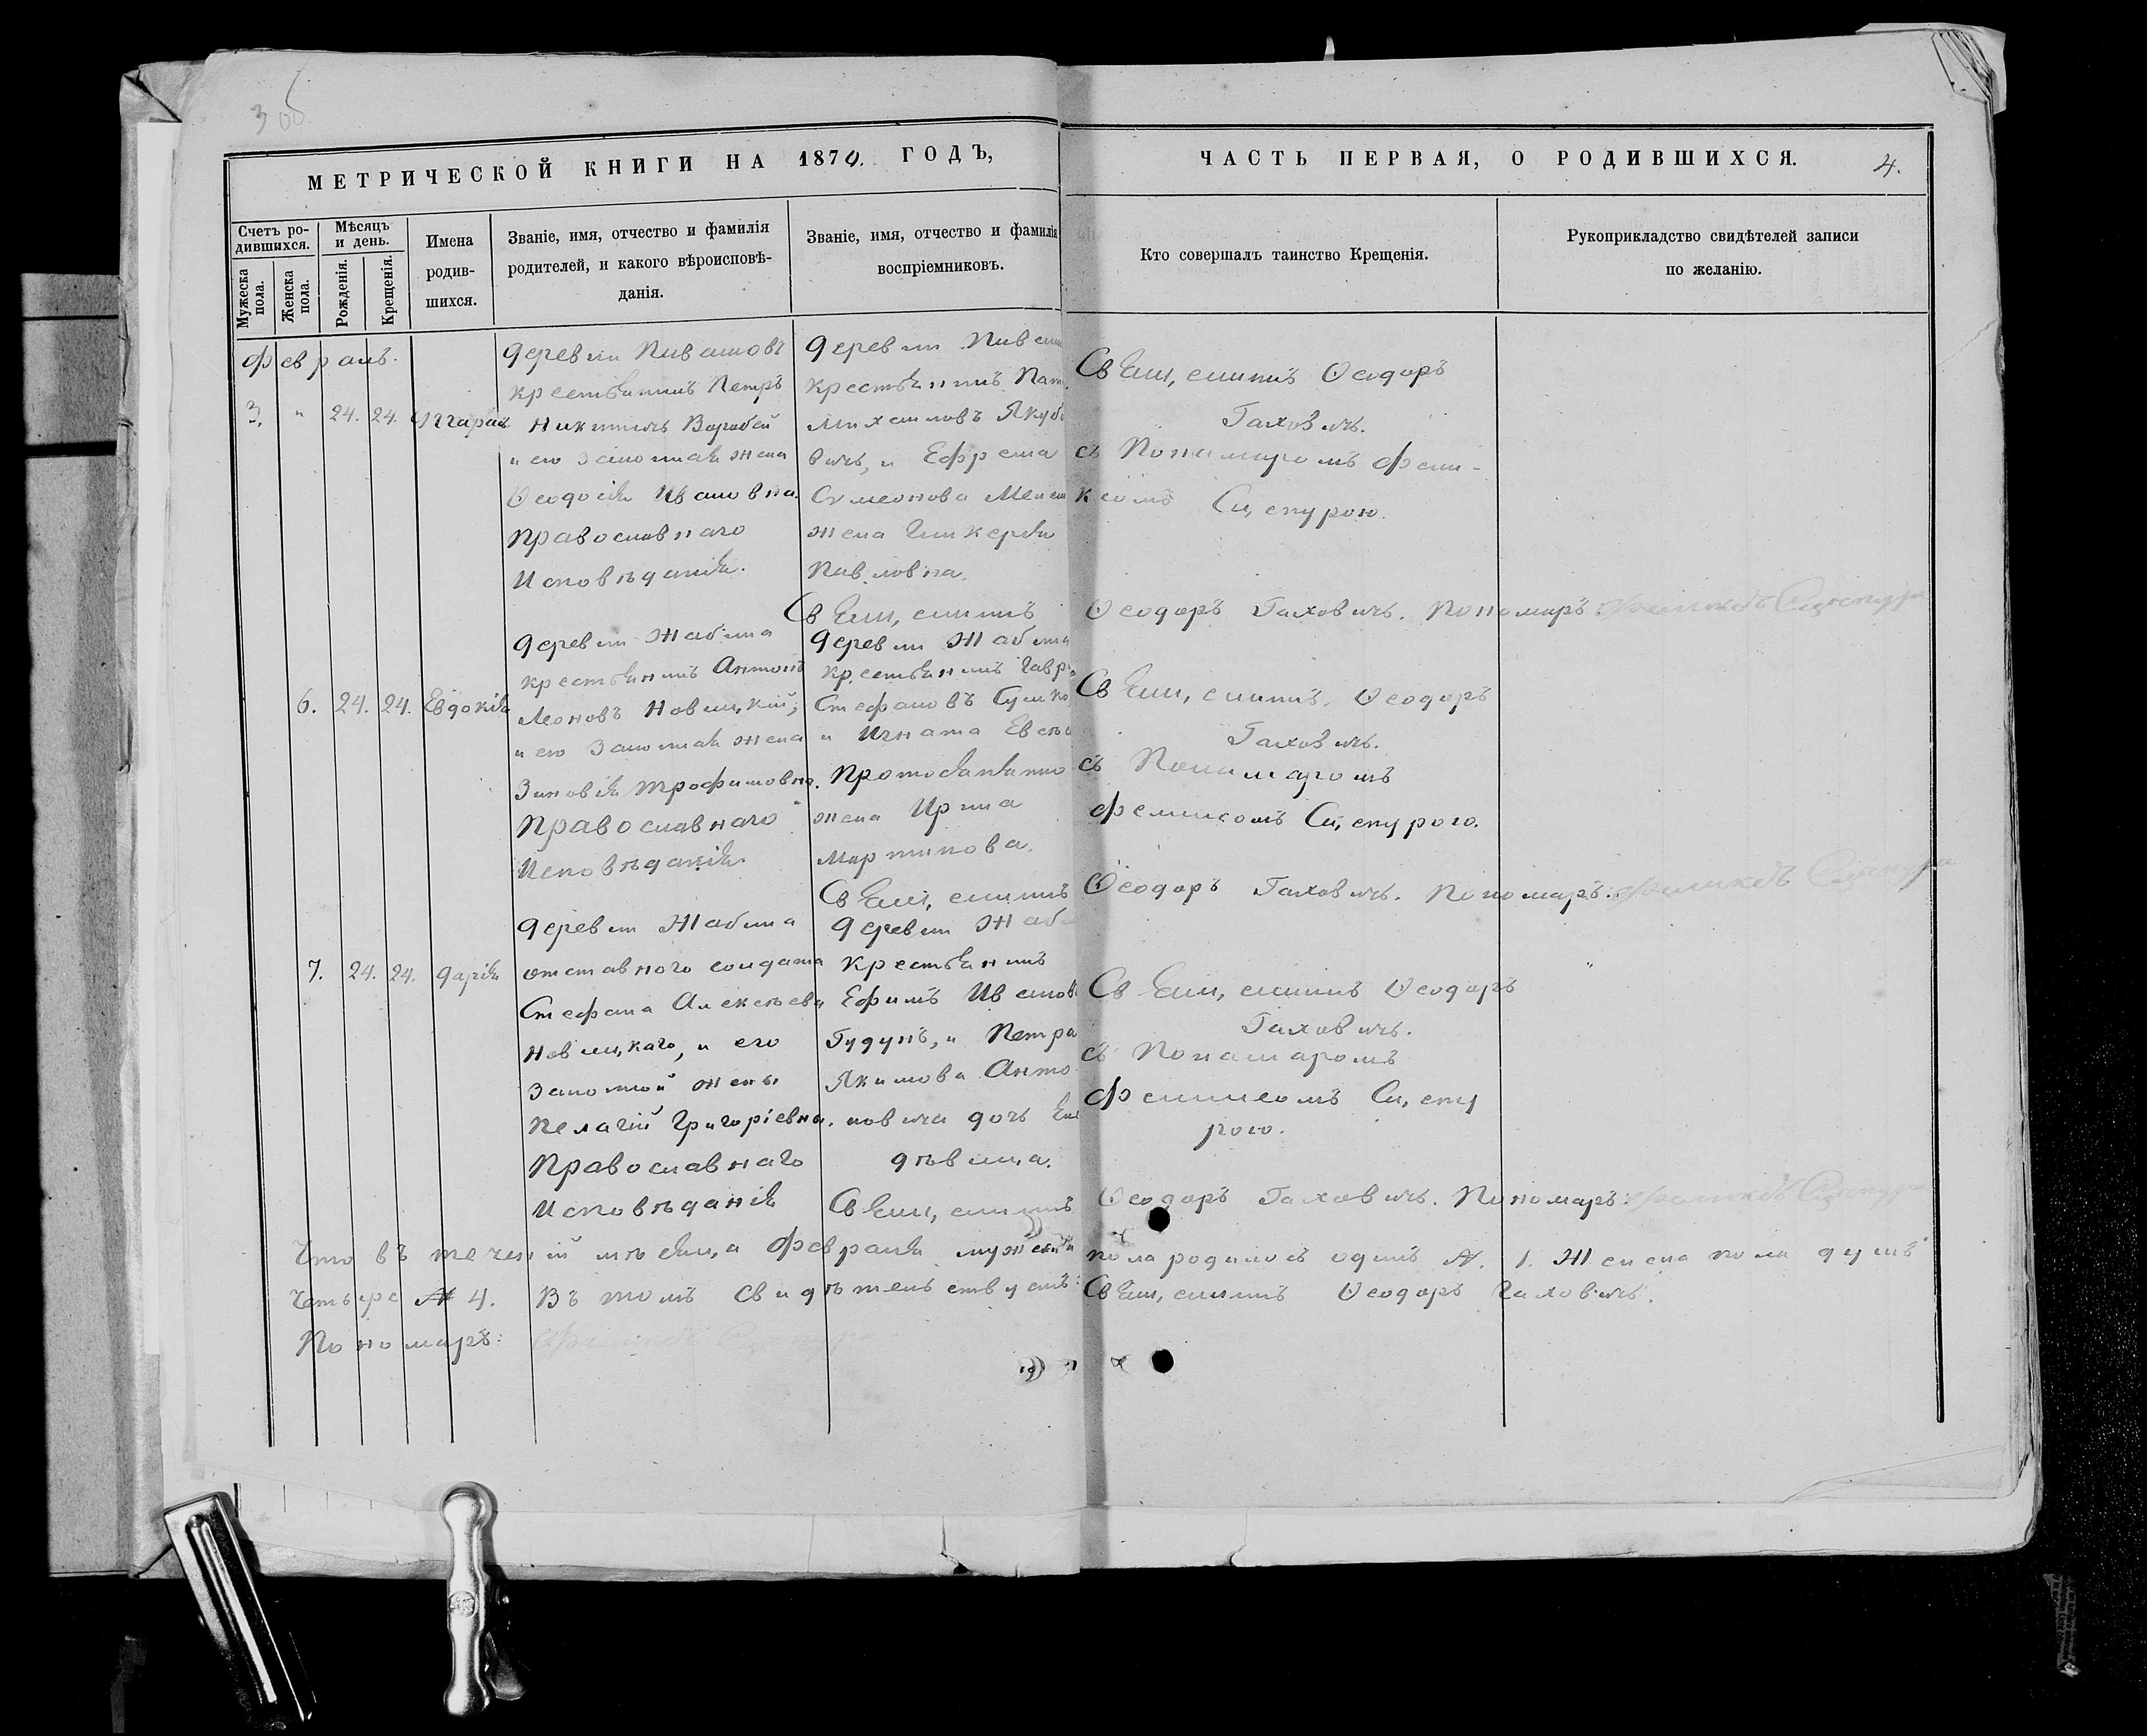 3 об
МЕТРИЧЕСКОЙ КНИГИ НА 1870. ГОДЪ,
ЧАСТЬ ПЕРВАЯ, О РОДИВШИХСЯ.
4.
Счетъ ро-
дившихся.
Мужеска
пола.
Женска
пола.
Мѣсяцъ
и день.
Рожденія.
Крещенія.
Имена
родив-
шихся.
Званіе, имя, отчество и фамилія
родителей, и какого вѣроисповѣ-
данія.
Званіе, имя, отчество и фамилія
воспріемниковъ.
Кто совершалъ таинство Крещенія.
Рукоприкладство свидѣтелей записи
по желанію.
Февраль.
3. " 24. 24.
деревни
крестьянинъ Петръ
Никитичъ Воробей
и его законная жена
Ѳеодосія Ивановна
Православнаго
Исповѣданія.
деревни
крестьянинъ
Михаиловъ
вичъ, и Ефрема
Симеонова
жена Гликерія
Павловна.
Священникъ Ѳеодоръ
Гаховичъ.
съ Пономаромъ Фели-
ксомъ Сцепурою.
Священникъ Ѳеодоръ Гаховичъ. Пономаръ: Феликсъ Сцепура
6. 24. 24. Евдокія
деревни Жабина
крестьянинъ Антонъ
Леоновъ Новицкій,
и его законная жена
Зиновія Трофимовна.
Православнаго
Исповѣданія.
деревни
крестьянинъ
Стефановъ
и Игната
жена Ирина
Мартинова.
Священникъ Ѳеодоръ
Гаховичъ.
съ Пономаромъ
Феликсомъ Сцепурою.
Священникъ Ѳеодоръ Гаховичъ. Пономаръ: Феликсъ Сцепура
7. 24. 24. Дарія
деревни Жабина
отставного солдата
Стефана Алексѣева
Новицкаго, и его
законной жены
Пелагіи Григоріевны.
Православнаго
Исповѣданія
деревни
крестьянинъ
Ефимъ
Гудунъ, и Петра
Якимова Анто-
новича дочь
дѣвица.
Священникъ Ѳеодоръ
Гаховичъ.
съ Пономаромъ
Феликсомъ Сцепу
рою.
Священникъ Ѳеодоръ Гаховичъ. Пономаръ: Феликсъ Сцепура
Что въ теченіи мѣсяца Февраля мужеска пола родилось одинъ № 1. Женска пола душъ
четыре № 4. Въ томъ свидѣтельствуемъ: Священникъ Ѳеодоръ Гаховичъ.
Пономаръ: Феликсъ Сцепура